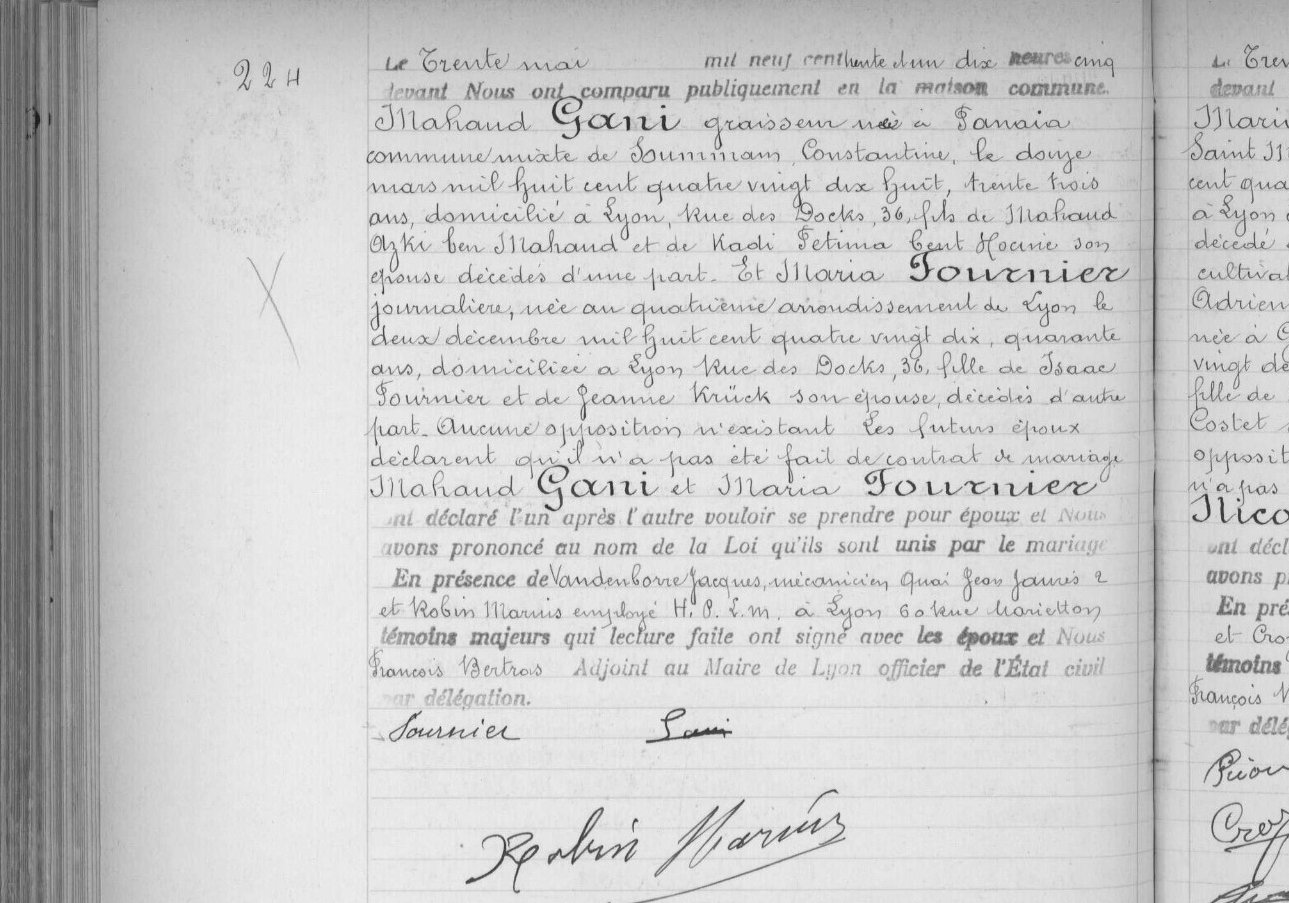 224
Le Trente mai mil neuf cent trente et un dix heures cinq
devant Nous ont comparu publiquement en la maison commune.
Mahaud Gani graisseur né à Tanaia
commune mixte de Soummam, Constantine, le douze
mars mil huit cent quatre vingt dix huit, trente trois
ans, domicilié à Lyon, Rue des Docks, 36, fils de Mahaud
Azki ben Mahaud et de Kadi Fetima bent Hocine son
epouse décédés d'une part. Et Maria Fournier
journalière, née au quatrième arrondissement de Lyon le
deux décembre mil huit cent quatre vingt dix, quarante
ans, domiciliée a Lyon Rue des Docks, 36, fille de Isaac
Fournier et de Jeanne Krück son épouse, décédés d'autre
part. Aucune opposition n'existant Les futurs époux
déclarent qu'il n'a pas été fait de contrat de mariage
Mahaud Gani et Maria Fournier
ont déclaré l'un après l'autre vouloir se prendre pour époux et Nous
avons prononcé au nom de la Loi qu'ils sont unis par le mariage
En présence de Vandenborre Jacques, mécanicien, Quai Jean Jaurès 2
et Robin Marius employé H. P. L. M. à Lyon 60 Rue Marietton
témoins majeurs qui lecture faite ont signé avec les époux et Nous
François Bertrois Adjoint au Maire de Lyon officier de l'État civil
par délégation.
Fournier Gani
Robin Marius
Le Tren
devant
Mari
Saint M
cent qua
à Lyon
décédé
cultivat
Adrien
née à
vingt de
fille de
Costet
opposit
n'a pas
Nico
ont décl
avons p
En pré
et Cro
témoins
François
par délé